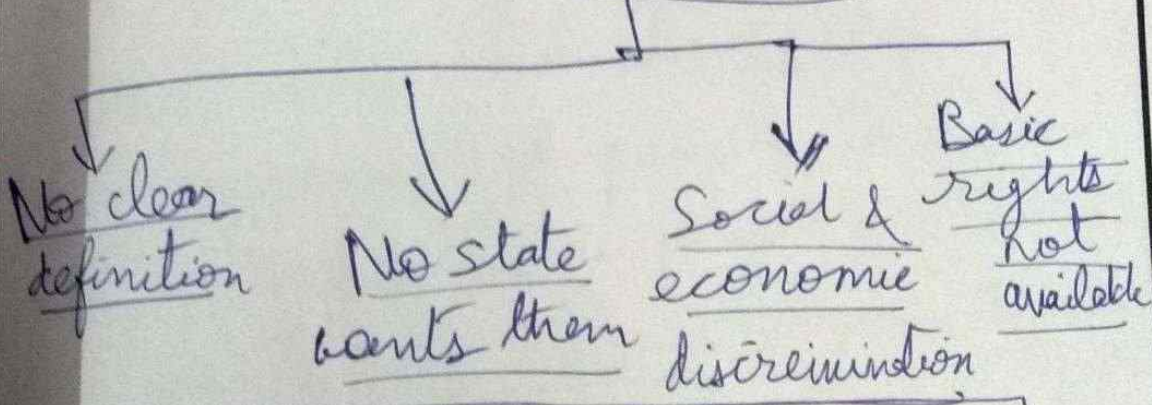 No clear
definition
No state
wants them
Social &
economic
discrimination
Basic
rights
not
available